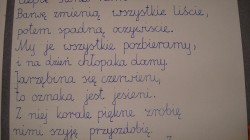 Barwę zmienią wszystkie liście,
potem spadną, oczywiście.
My je wszystkie pozbieramy,
i na dzień chłopaka damy.
Jarzębina się czerwieni,
to oznaka jest jesieni.
Z niej korale piękne zrobię
nimi szyję przyozdobię.